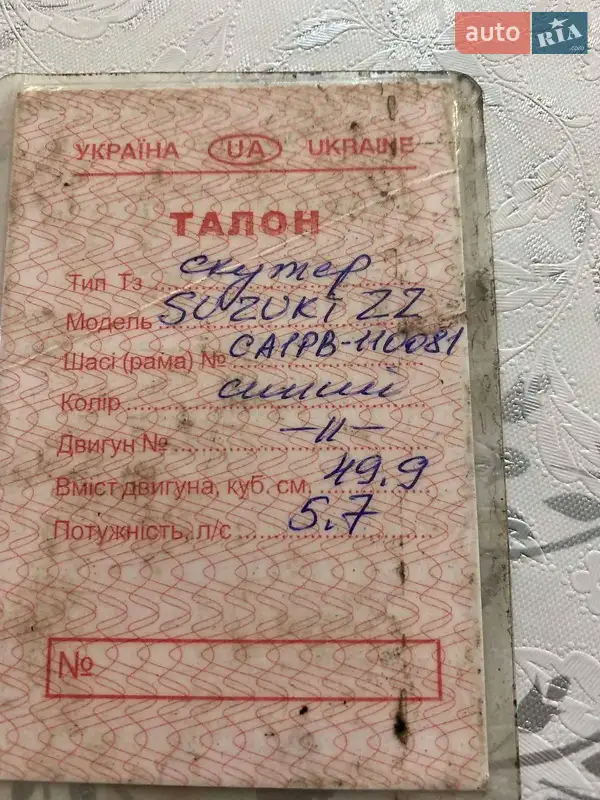 auto RIA .com
УКРАЇНА UA UKRAINE
ТАЛОН
Тип Тз скутер
Модель SUZUKI ZZ
Шасі (рама) № CA1PB-110081
Колір синий
Двигун № –11–
Вміст двигуна, куб. см. 49.9
Потужність, л/с 5.7
№